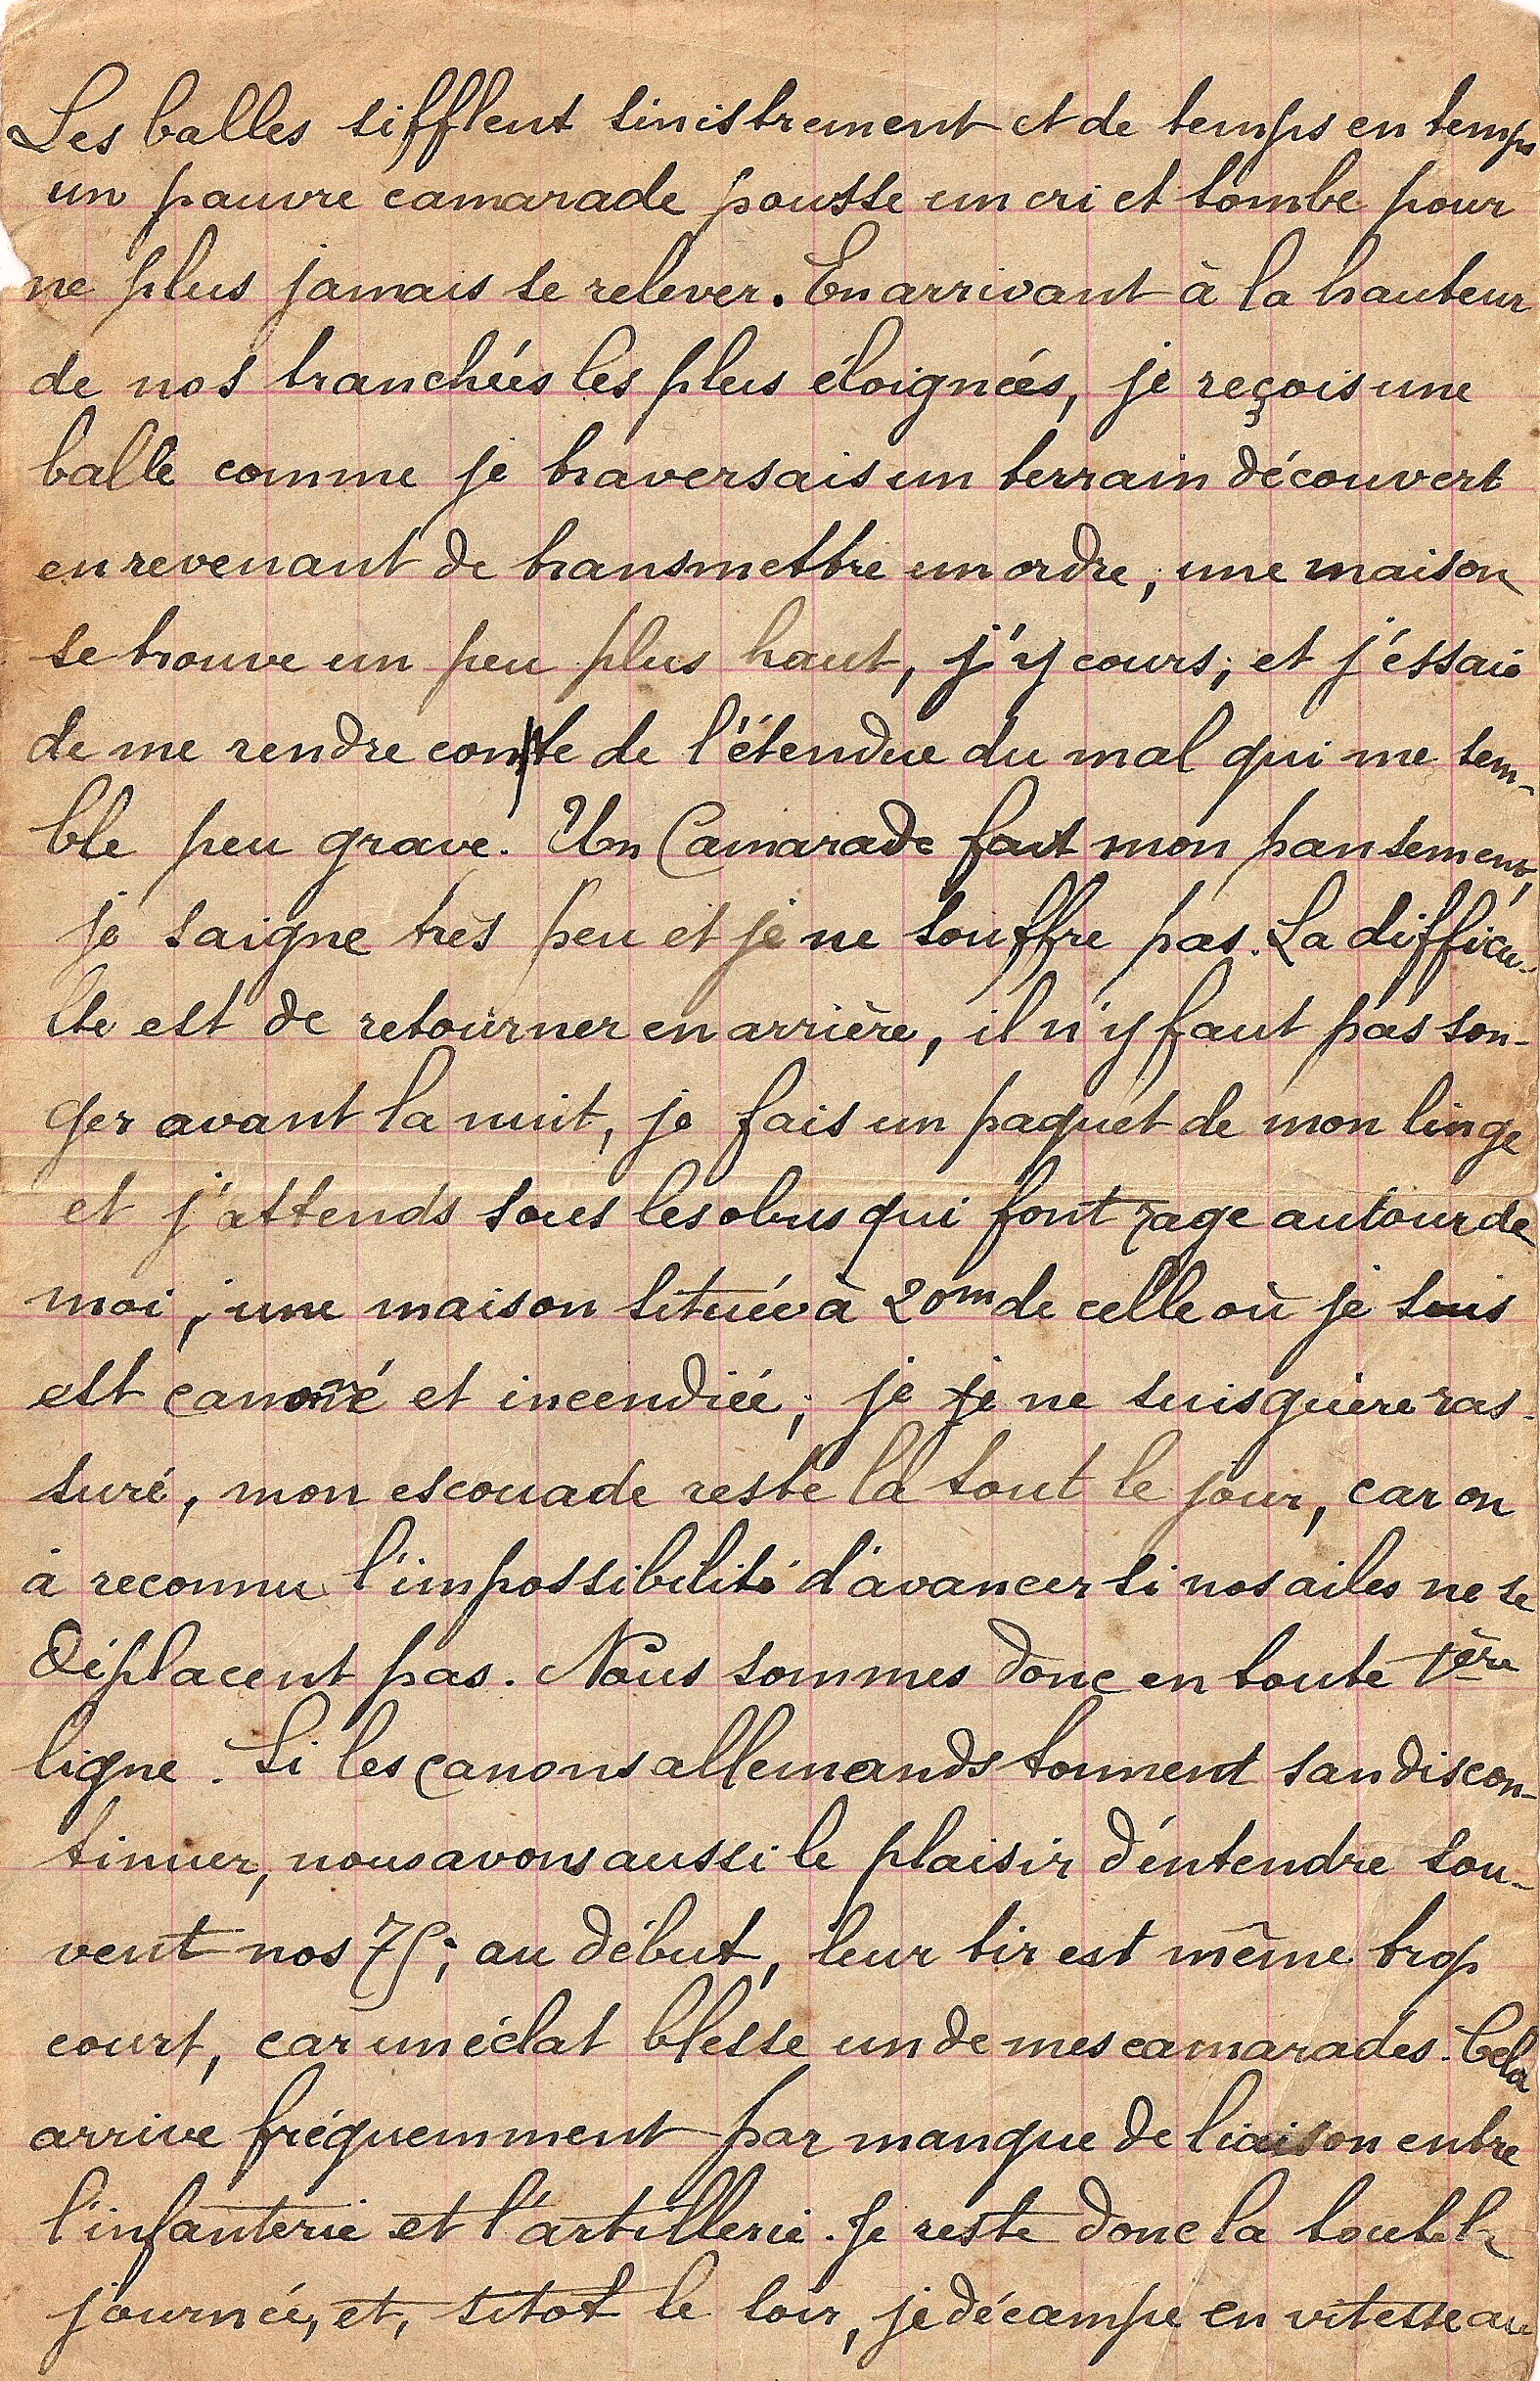 Les balles sifflent sinistrement et de temps en temps
un pauvre camarade pousse un cri et tombe pour
ne plus jamais se relever. En arrivant à la hauteur
de nos tranchées les plus éloignées, je reçois une
balle comme je traversais un terrain découvert
en revenant de transmettre un ordre, une maison
se trouve un peu plus haut, j'y cours, et j'éssaie
de me rendre compte de l'étendue du mal qui me sem-
ble peu grave. Un Camarade fait mon pansement,
je saigne très peu et je ne souffre pas. La difficu-
lté est de retourner en arrière, il n'y faut pas son-
ger avant la nuit, je fais un paquet de mon linge
et j'attends sous les obus qui font rage autour de
moi, une maison située à 20m de celle où je suis
est canonné et incendiée, je je ne suis guère ras-
suré, mon escouade reste là tout le jour, car on
à reconnu l'impossibilité d'avancer si nos ailes ne se
déplacent pas. Nous sommes donc en toute 1ère
ligne. Si les canons allemands tonnent san discon-
tinuer, nous avons aussi le plaisir d'éntendre sou-
vent nos 75; au début, leur tir est même trop
court, car un éclat blesse un de mes camarades. Cela
arrive fréquemment par manque de liaison entre
l'infanterie et l'artillerie. Je reste donc la toute la
journée, et, sitot le soir, je décampe en vitesse au